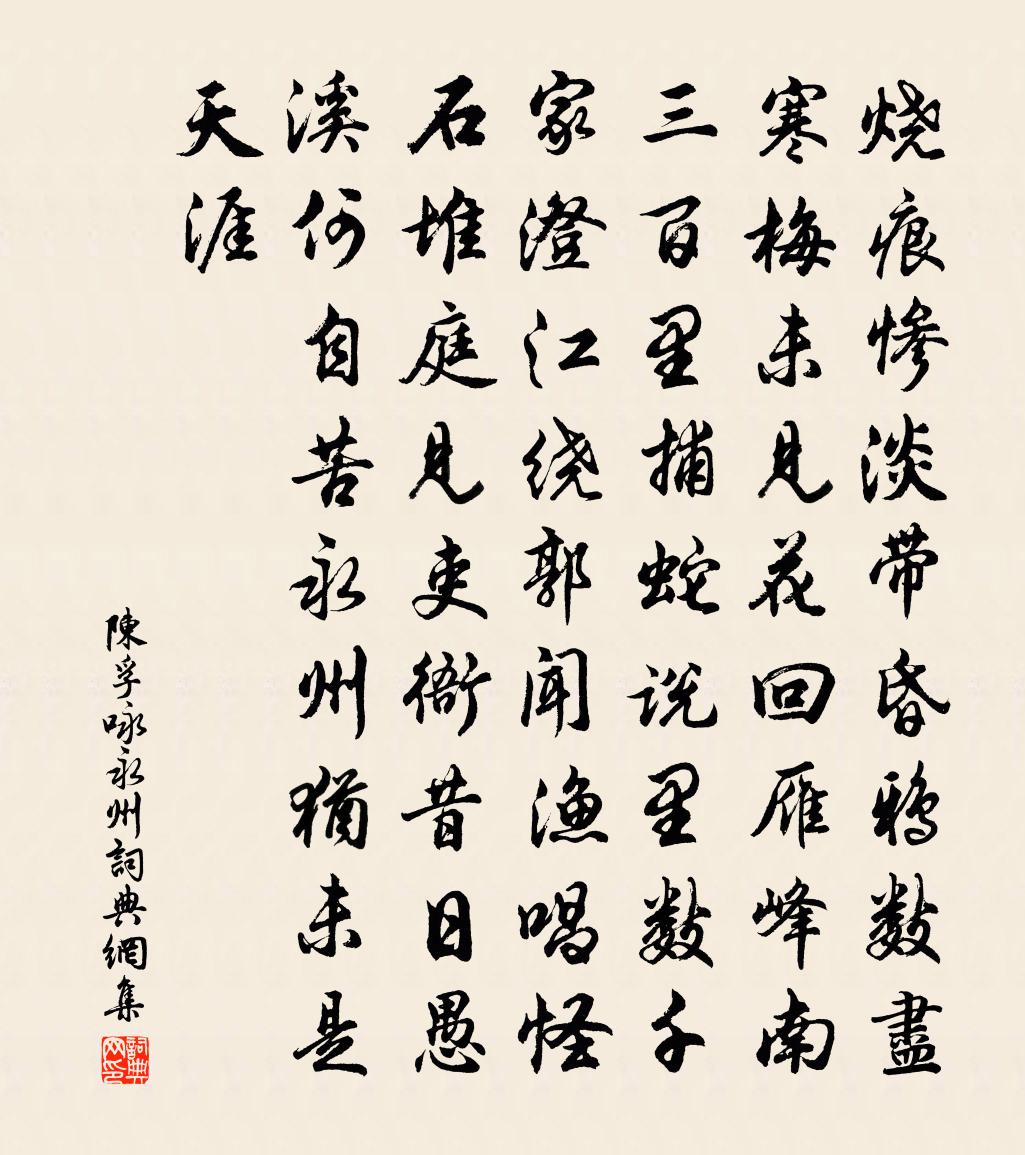 烧痕惨淡带昏鸦数盡
寒梅未见花回雁峰南
三百里捕蛇说里数千
家澄江绕郭闻渔唱怪
石堆庭见吏衙昔日愚
溪何自苦永州猶未是
天涯
陳孚咏永州詞典網集
詞典网印